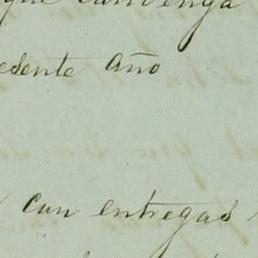 que convenga
esente año
con entregas